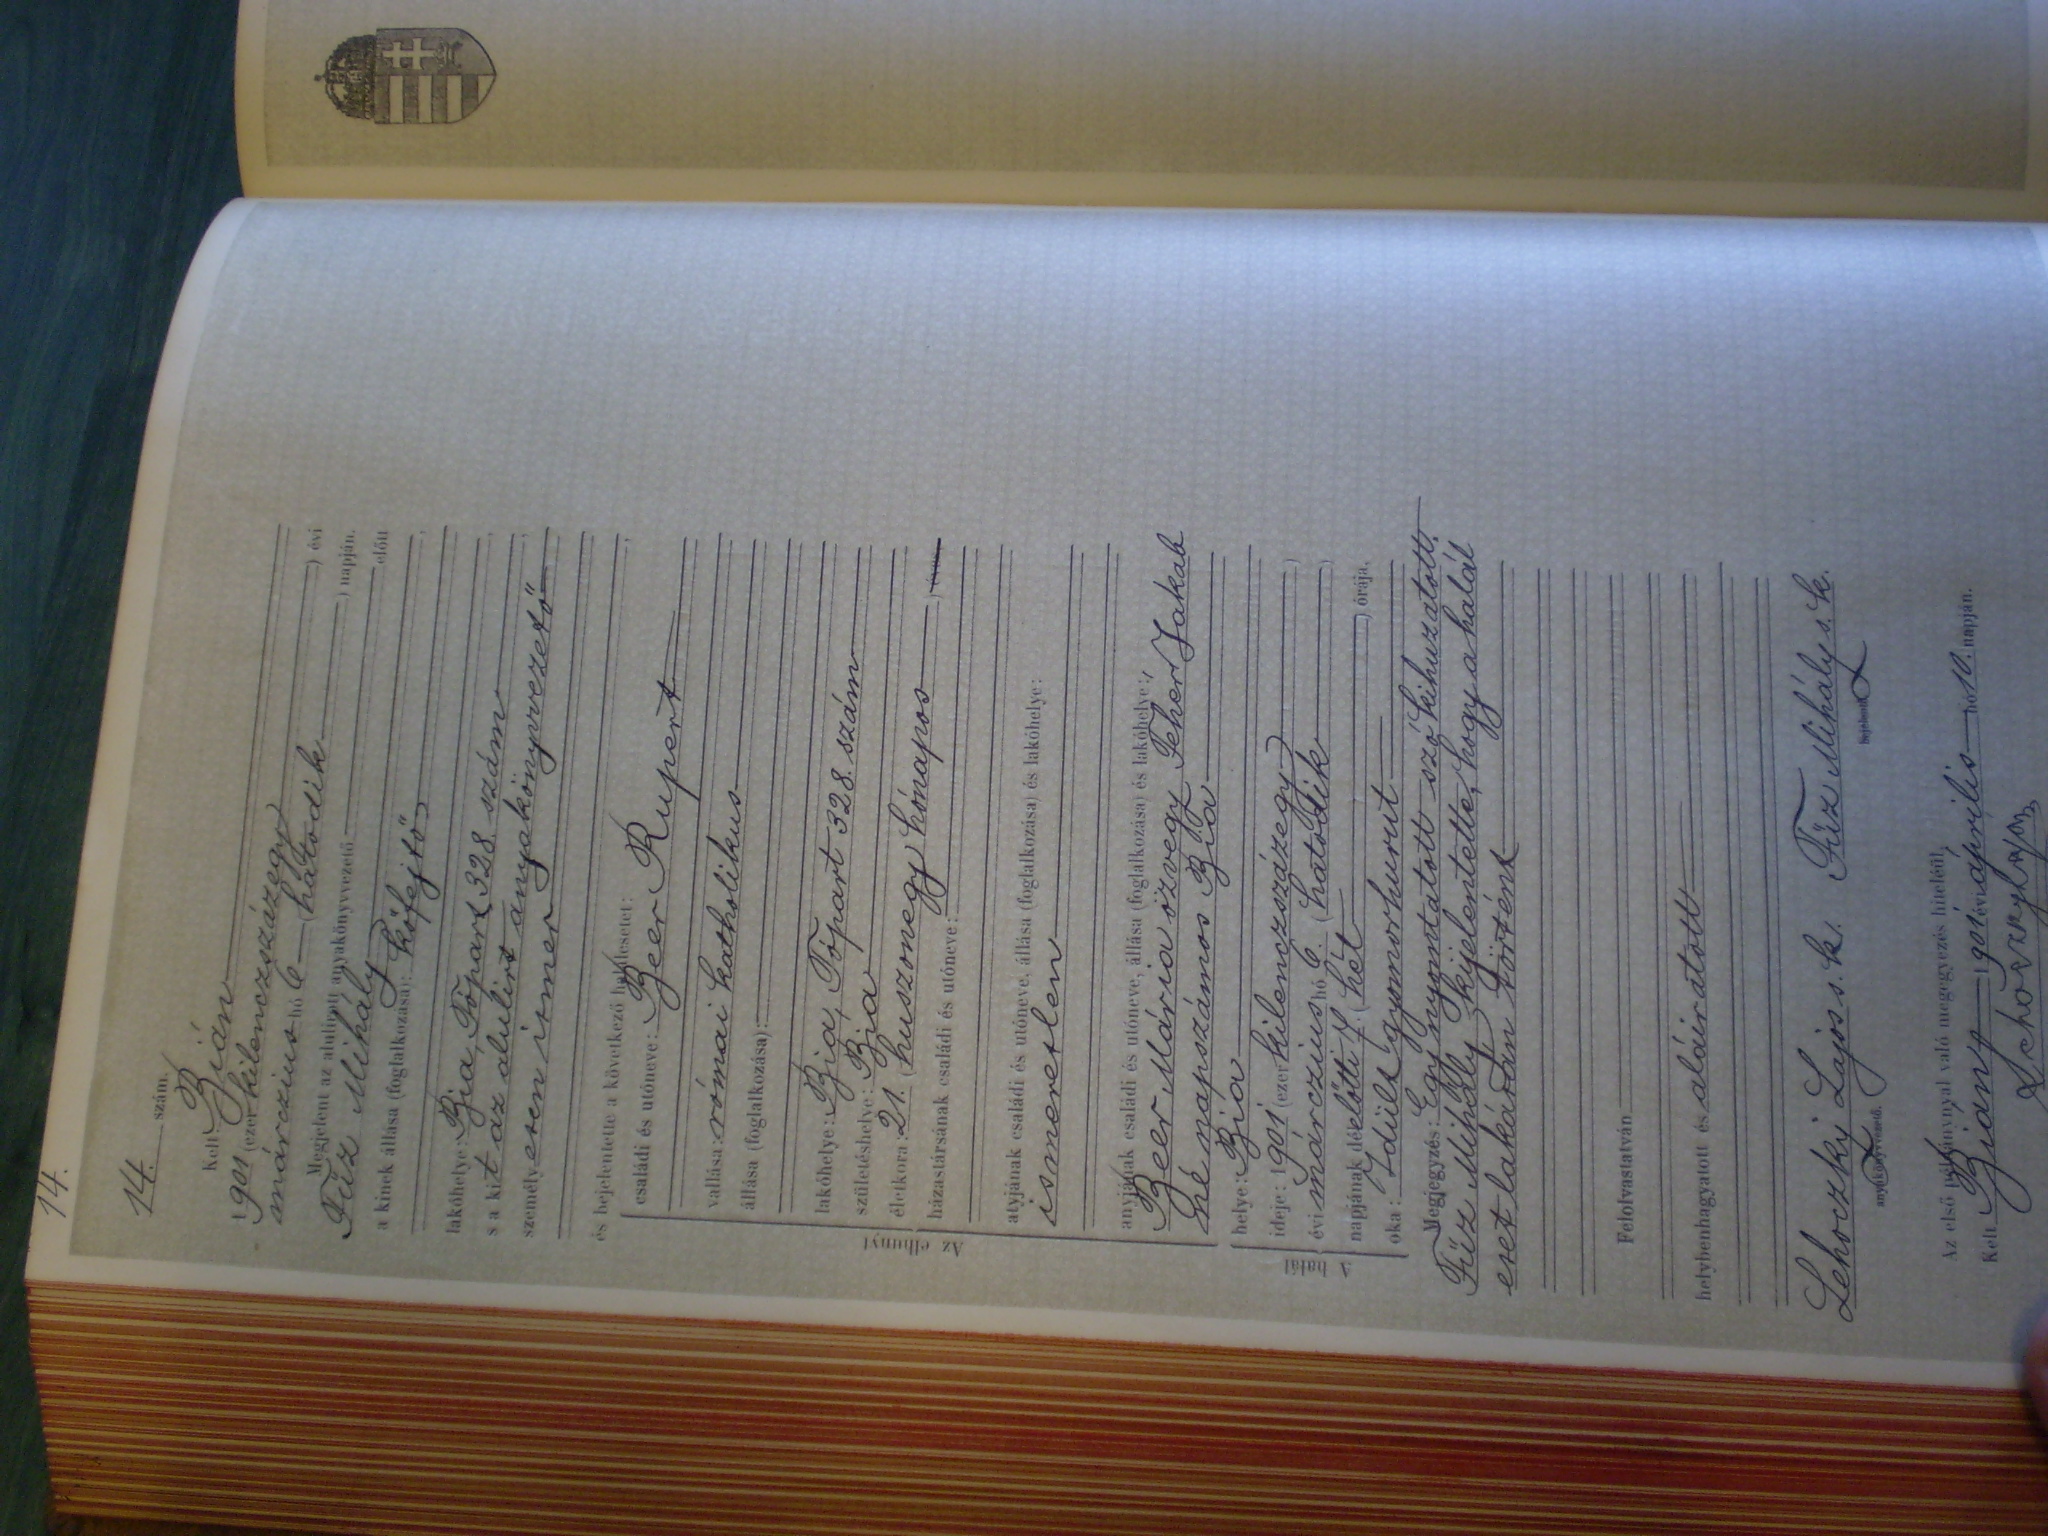 14.
14. szám.
Kelt Bián
1901 (ezer kilenczszázegy) évi
márczius hó 6 (hatodik) napján.
Megjelent az alulírott anyakönyvvezető előtt
Füz Mihály
a kinek állása (foglalkozása): kőfejtő,
lakóhelye: Bia, Tópart 328. szám,
s a kit az alulirt anyakönyvvezető
személyesen ismer
és bejelentette a következő halálesetet:
Az elhunyt
családi és utóneve: Beer Rupert
vallása: római katholikus
állása (foglalkozása):
lakóhelye: Bia, Tópart 328. szám
születéshelye: Bia
életkora: 21. (huszonegy hónapos) éves,
házastársának családi és utóneve:
atyjának családi és utóneve, állása (foglalkozása) és lakóhelye:
ismeretlen
anyjának családi és utóneve, állása (foglalkozása) és lakóhelye:
Beer Mária özvegy Feher Jakab
né napszámos Bia
A halál
helye: Bia
ideje: 1901 (ezer kilenczszázegy)
évi márczius hó 6. (hatodik)
napjának délelőtti 7. (hét) órája,
oka: Idült gyomorhurut
Megjegyzés: Egy nyomtatott szó kihuzatott.
Füz Mihály kijelentette, hogy a halál
eset lakásán történt
Felolvastatván
helybenhagyatott és aláiratott
Lehoczky Lajos s. k. Füz Mihály s. k.
anyakönyvvezető. bejelentő
Az első példánnyal való megegyezés hiteléül,
Kelt Bián 1901 évi április hó 10. napján.